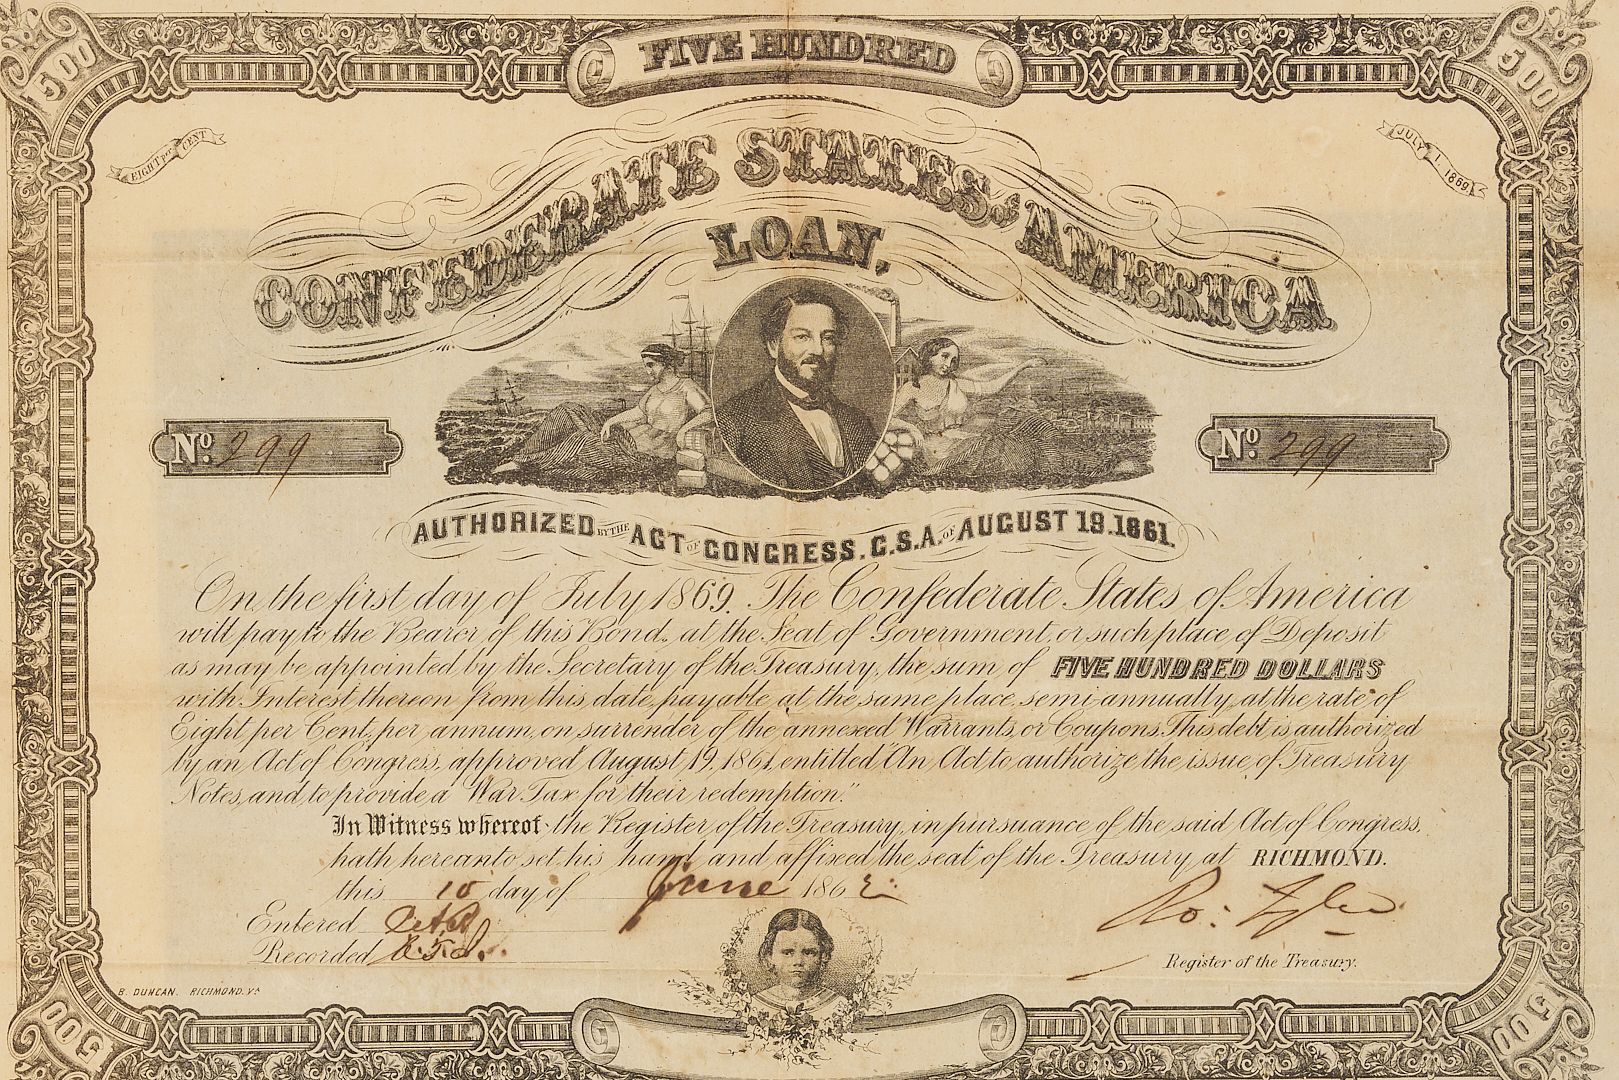 500
FIVE HUNDRED
500
EIGHT per CENT
JULY 1. 1869.
CONFEDERATE STATES of AMERICA
LOAN,
No. 299
No. 299
AUTHORIZED BY THE ACT OF CONGRESS. C.S.A. OF AUGUST 19.1861.
On the first day of July 1869. The Confederate States of America
will pay to the Bearer of this Bond, at the Seat of Government, or such place of Deposit
as may be appointed by the Secretary of the Treasury, the sum of FIVE HUNDRED DOLLARS
with Interest thereon from this date, payable at the same place, semi annually, at the rate of
Eight per Cent, per annum, on surrender of the annexed Warrants, or Coupons. This debt is authorized
by an Act of Congress, approved August 19, 1861, entitled "An Act to authorize the issue of Treasury
Notes, and to provide a War Tax for their redemption."
In Witness whereof the Register of the Treasury, in pursuance of the said Act of Congress,
hath hereunto set his hand, and affixed the seal of the Treasury at RICHMOND.
this 10 day of June 1862
Entered
Recorded
Ro: Tyler
Register of the Treasury.
B. DUNCAN. RICHMOND. Va
500
500